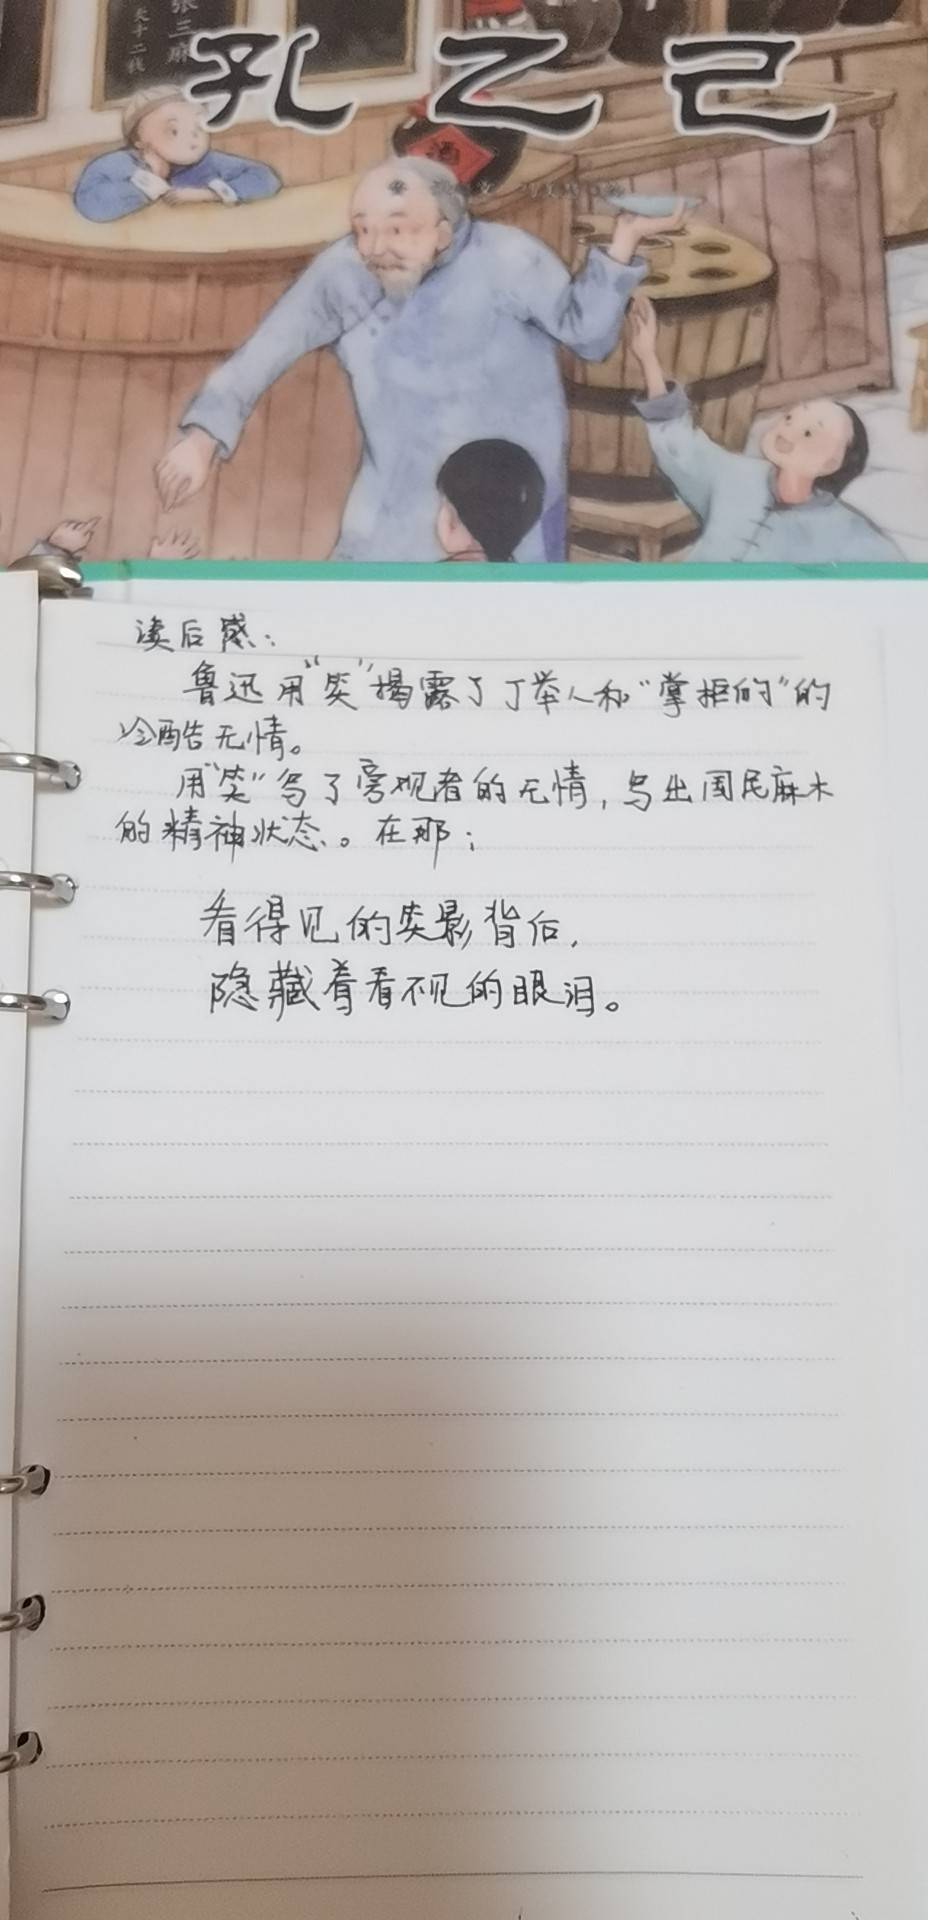 张三麻
欠十二钱
孔乙己
酒
读后感：
鲁迅用“笑”揭露了丁举人和“掌柜的”的
冷酷无情。
用“笑”写了旁观者的无情，写出国民麻木
的精神状态。在那；
看得见的笑影背后，
隐藏着看不见的眼泪。